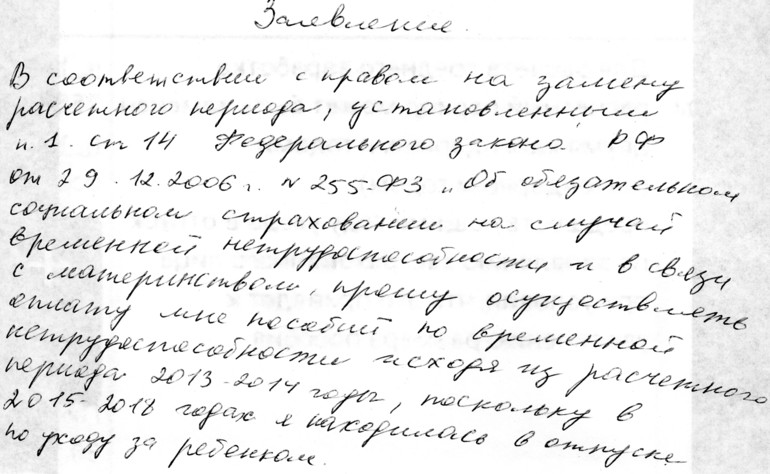 Заявление.
В соответствии с правом на замену
расчетного периода, установленным
п.1. ст 14 Федерального закона РФ
от 29.12.2006г. N 255-ФЗ „Об обязательном
социальном страховании на случай
временной нетрудоспособности и в связи
с материнством, прошу осуществлять
оплату мне пособий по временной
нетрудоспособности исходя из расчетного
периода 2013-2014 годы, поскольку в
2015-2018 годах я находилась в отпуске
по уходу за ребенком.